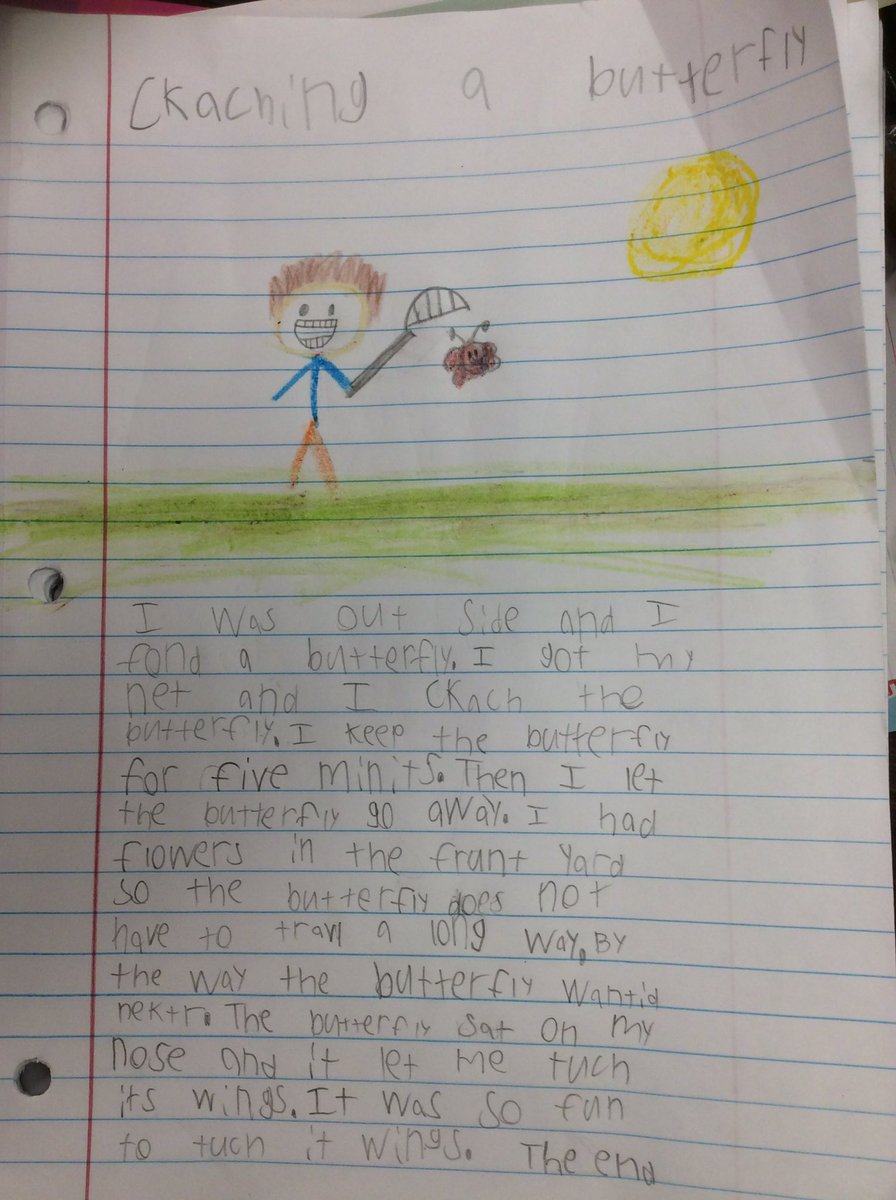 Ckaching a butterfly
I was out side and I
fond a butterfly. I got my
net and I ckach the
butterfly. I keep the butterfly
for five minits. Then I let
the butterfly go away. I had
flowers in the frunt yard
so the butterfly does not
have to travl a long way. By
the way the butterfly wantid
nektr. The butterfly sat on my
nose and it let me tuch
its wings. It was so fun
to tuch it wings. The end